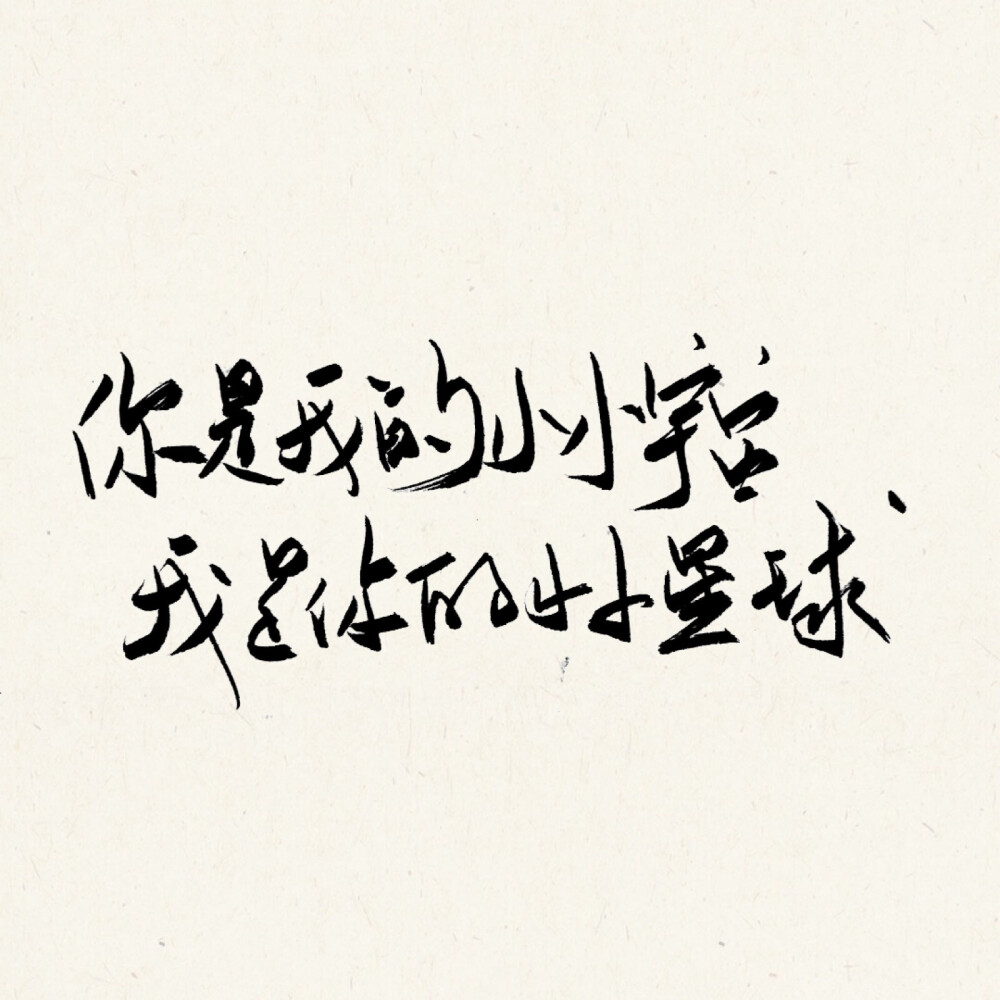 你是我的小小宇宙
我是你的小小星球